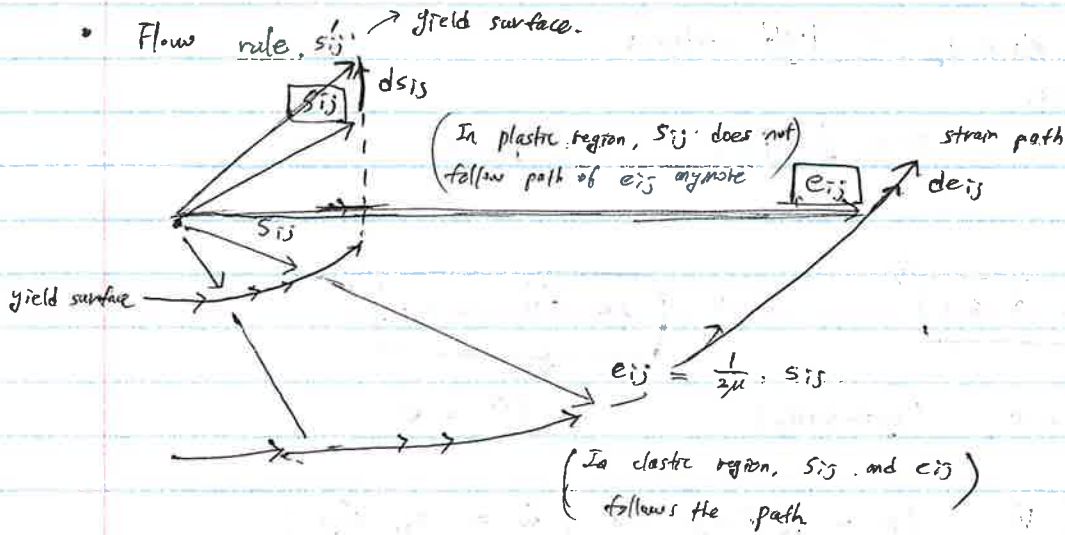 • Flow rule. s'ij → yield surface.
sij
dsij
(In plastic region, sij does not
follow path of eij anymore)
strain path
eij
deij
sij
yield surface
eij = 1/2μ . sij
(In elastic region, sij and eij
follows the path)